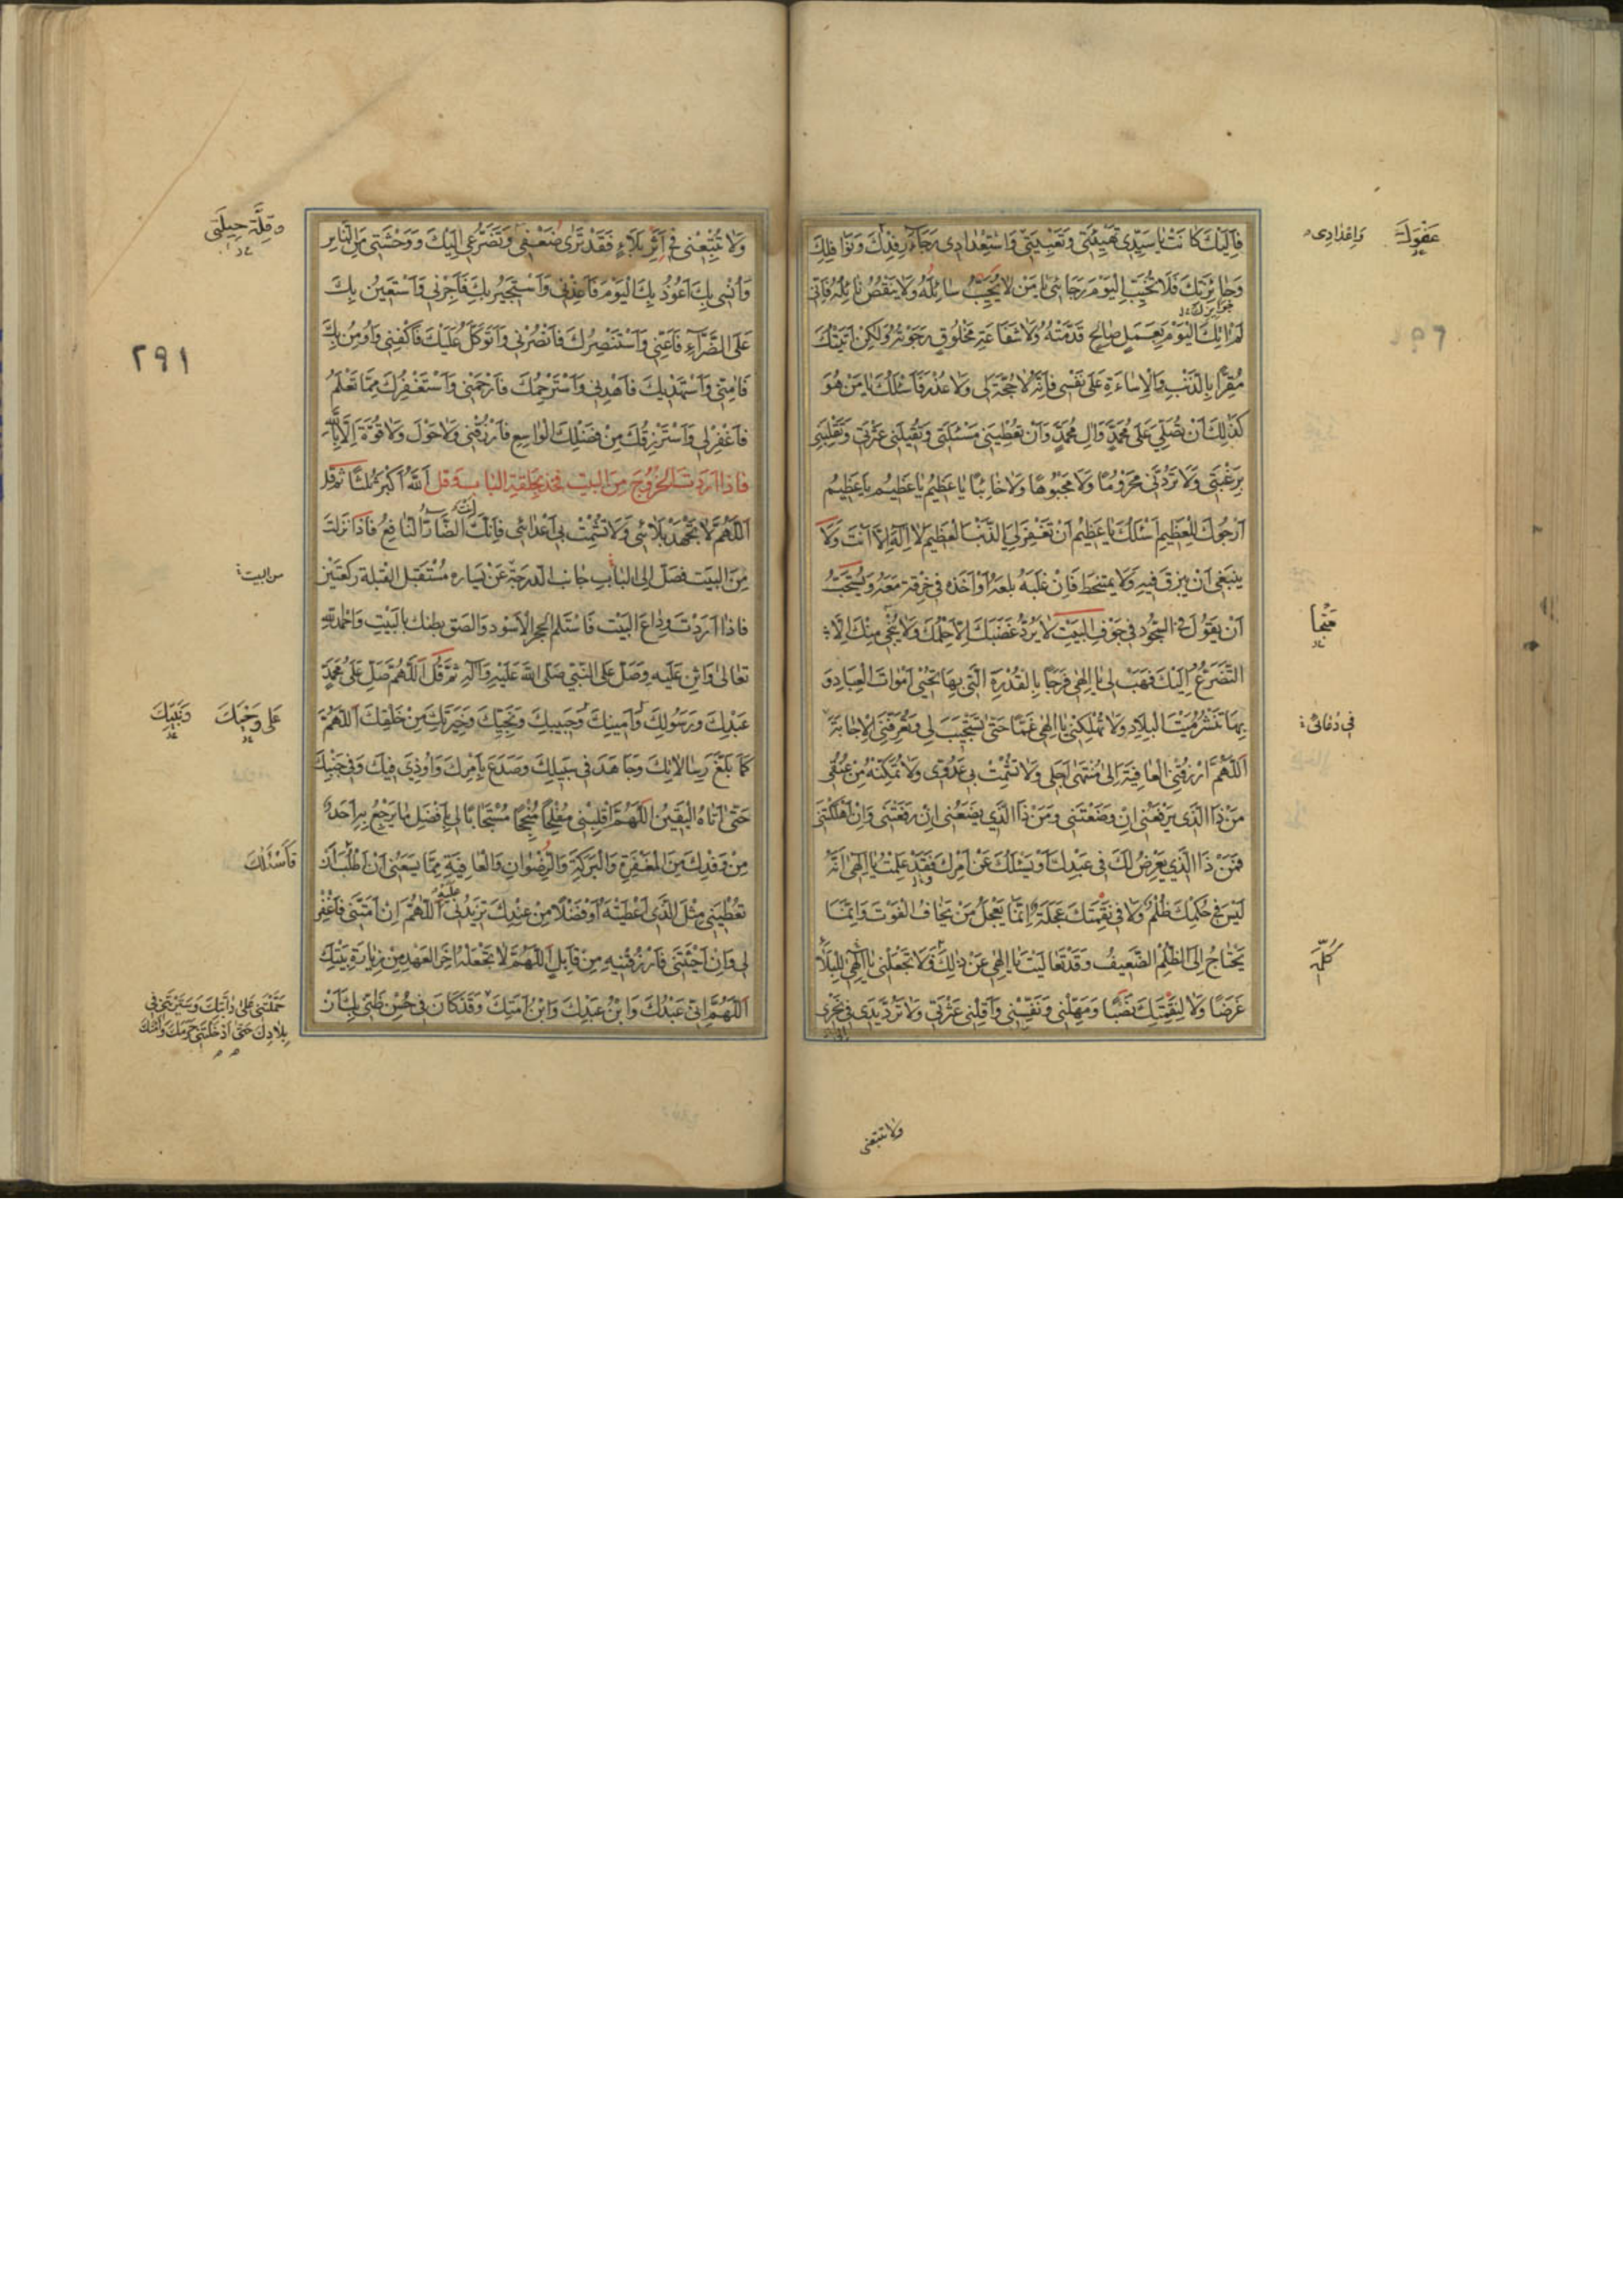 فَاِلَيْكَ كَانَتْ يَا سَيِّدِي تَهْيِئَتِي وَتَعْبِيَتِي وَاسْتِعْدَادِي رَجَاءَ رِفْدِكَ وَنَوَافِلِكَ
وَجَائِزَتِكَ فَلَا تُخَيِّبِ الْيَوْمَ رَجَائِي يَا مَنْ لَا يَخِيبُ سَائِلُهُ وَلَا يَنْقُصُ نَائِلُهُ فَاِنِّي
لَمْ اٰتِكَ الْيَوْمَ بِعَمَلٍ صَالِحٍ قَدَّمْتُهُ وَلَا شَفَاعَةِ مَخْلُوقٍ رَجَوْتُهُ وَلَكِنْ اَتَيْتُكَ
مُقِرًّا بِالذَّنْبِ وَالْاِسَاءَةِ عَلَى نَفْسِي فَاِنَّهُ لَا حُجَّةَ لِي وَلَا عُذْرَ فَاَسْئَلُكَ يَا مَنْ هُوَ
كَذَلِكَ اَنْ تُصَلِّيَ عَلَى مُحَمَّدٍ وَاٰلِ مُحَمَّدٍ وَاَنْ تُعْطِيَنِي مَسْئَلَتِي وَتُقِيلَنِي عَثْرَتِي وَتَقْلِبَنِي
بِرَغْبَتِي وَلَا تَرُدَّنِي مَحْرُومًا وَلَا مَجْبُوهًا وَلَا خَائِبًا يَا عَظِيمُ يَا عَظِيمُ يَا عَظِيمُ
اَرْجُوكَ لِلْعَظِيمِ اَسْئَلُكَ يَا عَظِيمُ اَنْ تَغْفِرَ لِيَ الذَّنْبَ الْعَظِيمَ لَا اِلَهَ اِلَّا اَنْتَ وَلَا
يَنْبَغِي اَنْ يَبْزُقَ فِيهِ وَلَا يَمْتَخِطَ فَاِنْ غَلَبَهُ بَلَعَهُ اَوْ اَخَذَهُ فِي خِرْقَةٍ مَعَهُ وَيُسْتَحَبُّ
اَنْ يَقُولَ فِي السُّجُودِ فِي جَوْفِ الْبَيْتِ لَا يَرُدُّ غَضَبَكَ اِلَّا حِلْمُكَ وَلَا يُنْجِي مِنْكَ اِلَّا
التَّضَرُّعُ اِلَيْكَ فَهَبْ لِي يَا اِلٰهِي فَرَجًا بِالْقُدْرَةِ الَّتِي بِهَا تُحْيِي اَمْوَاتَ الْعِبَادِ وَ
بِهَا تَنْشُرُ مَيْتَ الْبِلَادِ وَلَا تُهْلِكْنِي يَا اِلٰهِي غَمًّا حَتَّى تَسْتَجِيبَ لِي وَتُعَرِّفَنِي الْاِجَابَةَ
اَللّٰهُمَّ ارْزُقْنِي الْعَافِيَةَ اِلَى مُنْتَهَى اَجَلِي وَلَا تُشْمِتْ بِي عَدُوِّي وَلَا تُمَكِّنْهُ مِنْ عُنُقِي
مَنْ ذَا الَّذِي يَرْفَعُنِي اِنْ وَضَعْتَنِي وَمَنْ ذَا الَّذِي يَضَعُنِي اِنْ رَفَعْتَنِي وَاِنْ اَهْلَكْتَنِي
فَمَنْ ذَا الَّذِي يَعْرِضُ لَكَ فِي عَبْدِكَ اَوْ يَسْئَلُكَ عَنْ اَمْرِكَ فَقَدْ عَلِمْتُ يَا اِلٰهِي اَنَّهُ
لَيْسَ فِي حُكْمِكَ ظُلْمٌ وَلَا فِي نَقِمَتِكَ عَجَلَةٌ اِنَّمَا يَعْجَلُ مَنْ يَخَافُ الْفَوْتَ وَاِنَّمَا
يَحْتَاجُ اِلَى الظُّلْمِ الضَّعِيفُ وَقَدْ تَعَالَيْتَ يَا اِلٰهِي عَنْ ذَلِكَ فَلَا تَجْعَلْنِي يَا اِلٰهِي لِلْبَلَاءِ
غَرَضًا وَلَا لِنَقِمَتِكَ نَصَبًا وَمَهِّلْنِي وَنَفِّسْنِي وَاَقِلْنِي عَثْرَتِي وَلَا تَرُدَّ يَدِي فِي نَحْرِي
عَفْوَكَ
وَاِعْدَادِي
مِنْهَا
فِي دُعَائِي
كُلِّهِ
وَلَا تُتْبِعْنِي
وَلَا تُتْبِعْنِي فِي اَثَرِ بَلَاءٍ فَقَدْ تَرَى ضَعْفِي وَتَضَرُّعِي اِلَيْكَ وَوَحْشَتِي مِنَ النَّاسِ
وَاُنْسِي بِكَ اَعُوذُ بِكَ الْيَوْمَ فَاَعِذْنِي وَاَسْتَجِيرُ بِكَ فَاَجِرْنِي وَاَسْتَعِينُ بِكَ
عَلَى الضَّرَّاءِ فَاَعِنِّي وَاَسْتَنْصِرُكَ فَانْصُرْنِي وَاَتَوَكَّلُ عَلَيْكَ فَاكْفِنِي وَاُومِنُ بِكَ
فَاٰمِنِّي وَاَسْتَهْدِيكَ فَاهْدِنِي وَاَسْتَرْحِمُكَ فَارْحَمْنِي وَاَسْتَغْفِرُكَ مِمَّا تَعْلَمُ
فَاغْفِرْ لِي وَاَسْتَرْزِقُكَ مِنْ فَضْلِكَ الْوَاسِعِ فَارْزُقْنِي وَلَا حَوْلَ وَلَا قُوَّةَ اِلَّا بِاللّٰهِ
فَاِذَا اَرَدْتَ الْخُرُوجَ مِنَ الْبَيْتِ فَخُذْ بِحَلْقَةِ الْبَابِ وَقُلْ اَللّٰهُ اَكْبَرُ ثَلَاثًا ثُمَّ قُلْ
اَللّٰهُمَّ لَا تُجْهِدْ بَلَائِي وَلَا تُشْمِتْ بِي اَعْدَائِي فَاِنَّكَ اَنْتَ الضَّارُّ النَّافِعُ فَاِذَا نَزَلْتَ
مِنَ الْبَيْتِ فَصَلِّ اِلَى الْبَابِ جَانِبَ الدَّرَجَةِ عَنْ يَسَارِهِ مُسْتَقْبِلَ الْقِبْلَةِ رَكْعَتَيْنِ
فَاِذَا اَرَدْتَ وِدَاعَ الْبَيْتِ فَاسْتَلِمِ الْحَجَرَ الْاَسْوَدَ وَالْصَقْ بَطْنَكَ بِالْبَيْتِ وَاحْمَدِ اللّٰهَ
تَعَالَى وَاَثْنِ عَلَيْهِ وَصَلِّ عَلَى النَّبِيِّ صَلَّى اللّٰهُ عَلَيْهِ وَاٰلِهِ ثُمَّ قُلْ اَللّٰهُمَّ صَلِّ عَلَى مُحَمَّدٍ
عَبْدِكَ وَرَسُولِكَ وَاَمِينِكَ وَحَبِيبِكَ وَنَجِيِّكَ وَخِيَرَتِكَ مِنْ خَلْقِكَ اَللّٰهُمَّ
كَمَا بَلَّغَ رِسَالَاتِكَ وَجَاهَدَ فِي سَبِيلِكَ وَصَدَعَ بِاَمْرِكَ وَاُوذِيَ فِيكَ وَفِي جَنْبِكَ
حَتَّى اَتَاهُ الْيَقِينُ اَللّٰهُمَّ اقْلِبْنِي مُفْلِحًا مُنْجِحًا مُسْتَجَابًا لِي بِاَفْضَلِ مَا يَرْجِعُ بِهِ اَحَدٌ
مِنْ وَفْدِكَ مِنَ الْمَغْفِرَةِ وَالْبَرَكَةِ وَالرِّضْوَانِ وَالْعَافِيَةِ مِمَّا يَسَعُنِي اَنْ اَطْلُبَ اَنْ
تُعْطِيَنِي مِثْلَ الَّذِي اَعْطَيْتَهُ اَوْ فَضْلًا مِنْ عِنْدِكَ تَزِيدُنِي عَلَيْهِ اَللّٰهُمَّ اِنْ اَمَتَّنِي فَاغْفِرْ
لِي وَاِنْ اَحْيَيْتَنِي فَارْزُقْنِيهِ مِنْ قَابِلٍ اَللّٰهُمَّ لَا تَجْعَلْهُ اٰخِرَ الْعَهْدِ مِنْ زِيَارَةِ بَيْتِكَ
اَللّٰهُمَّ اِنِّي عَبْدُكَ وَابْنُ عَبْدِكَ وَابْنُ اَمَتِكَ وَقَدْ كَانَ فِي حُسْنِ ظَنِّي بِكَ اَنْ
وَقِلَّةَ حِيلَتِي
٢٩١
من البيت
عَلَى وَحْيِكَ
وَنَبِيِّكَ
فَاَسْئَلُكَ
حَمَلْتَنِي عَلَى دَابَّتِكَ وَسَيَّرْتَنِي فِي
بِلَادِكَ حَتَّى اَدْخَلْتَنِي حَرَمَكَ وَاَمْنَكَ